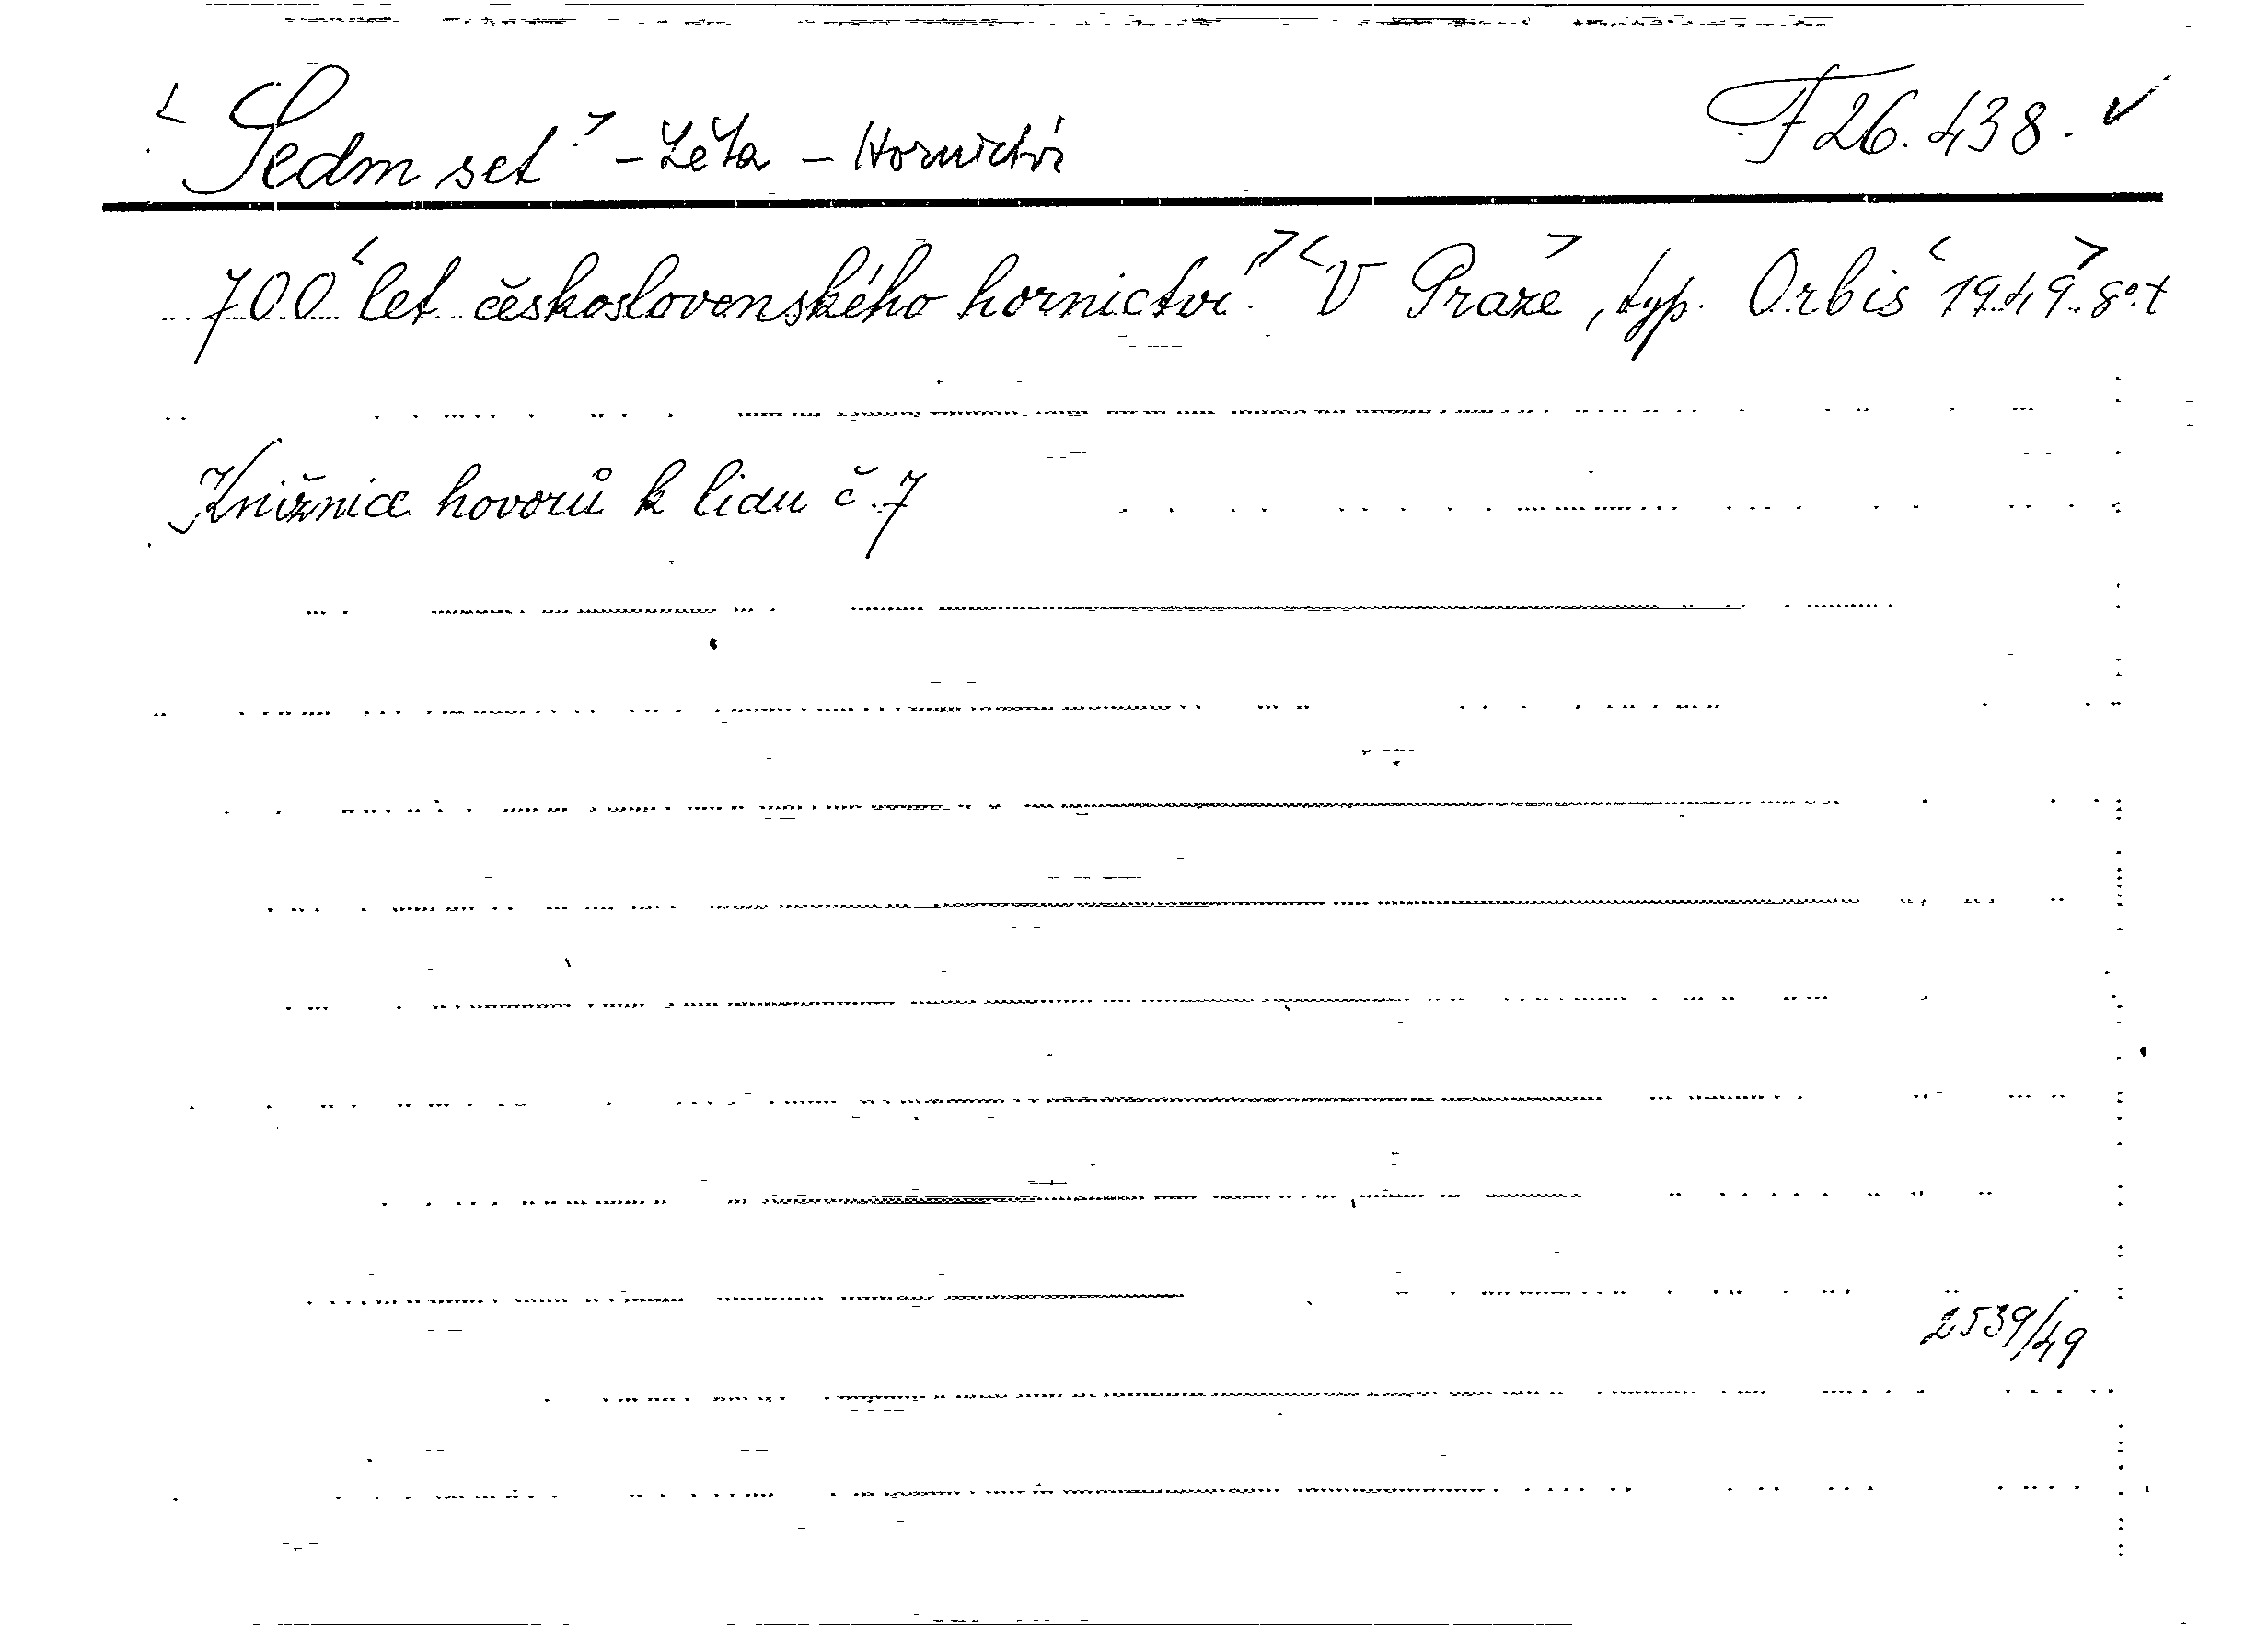 <Sedm set> - Léta - Hornictví F 26.438. ✓
700 <let československého hornictví.> <V Praze>, typ. Orbis <1949>. 8°. t
Knižnice hovorů k lidu č. 7
2539/49